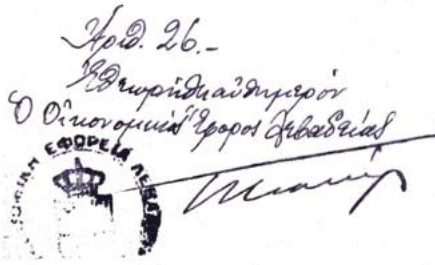 Ἀριθ. 26.-
Ἐθεωρήθη αὐθημερόν
Ὁ Οἰκονομικός Ἔφορος Λεβαδείας
ΕΦΟΡΕΙΑ ΛΕΒΑΔ